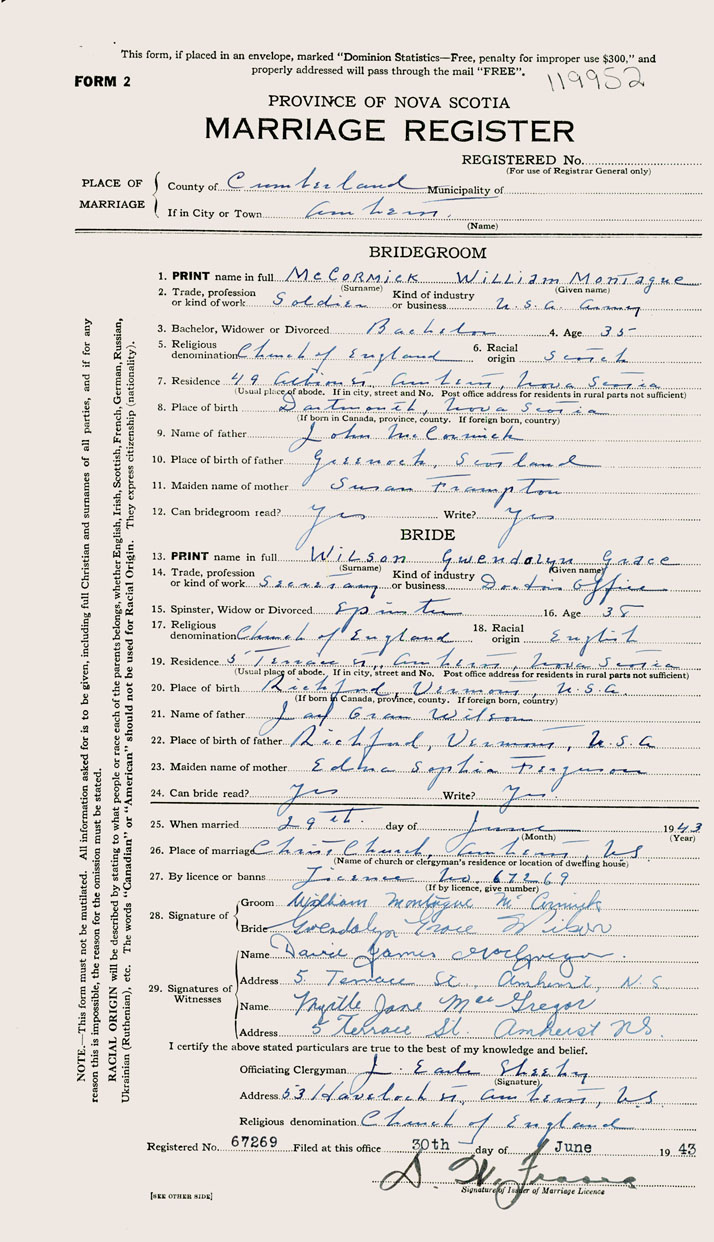 This form, if placed in an envelope, marked "Dominion Statistics—Free, penalty for improper use $300," and
properly addressed will pass through the mail "FREE".
119952
FORM 2
PROVINCE OF NOVA SCOTIA
MARRIAGE REGISTER
REGISTERED No.
(For use of Registrar General only)
PLACE OF MARRIAGE
County of Cumberland Municipality of
If in City or Town Amherst.
(Name)
BRIDEGROOM
1. PRINT name in full McCormick William Montague
(Surname) (Given name)
2. Trade, profession or kind of work Soldier Kind of industry or business U.S.A. Army
3. Bachelor, Widower or Divorced Bachelor 4. Age 35
5. Religious denomination Church of England 6. Racial origin Scotch
7. Residence 49 Albion St., Amherst, Nova Scotia
(Usual place of abode. If in city, street and No. Post office address for residents in rural parts not sufficient)
8. Place of birth Dartmouth, Nova Scotia
(If born in Canada, province, county. If foreign born, country)
9. Name of father John McCormick
10. Place of birth of father Greenock, Scotland
11. Maiden name of mother Susan Frampton
12. Can bridegroom read? Yes Write? Yes
BRIDE
13. PRINT name in full Wilson Gwendolyn Grace
(Surname) (Given name)
14. Trade, profession or kind of work Secretary Kind of industry or business Doctors Office
15. Spinster, Widow or Divorced Spinster 16. Age 38
17. Religious denomination Church of England 18. Racial origin English
19. Residence 5 Terrace St., Amherst, Nova Scotia
(Usual place of abode. If in city, street and No. Post office address for residents in rural parts not sufficient)
20. Place of birth Richford, Vermont, U.S.A.
(If born in Canada, province, county. If foreign born, country)
21. Name of father Jay Wilson
22. Place of birth of father Richford, Vermont, U.S.A
23. Maiden name of mother Edna Sophia Ferguson
24. Can bride read? Yes Write? Yes.
25. When married 29th. day of June 1943
(Month) (Year)
26. Place of marriage Christ Church, Amherst, NS
(Name of church or clergyman's residence or location of dwelling house)
27. By licence or banns Licence No. 67269
(If by licence, give number)
28. Signature of
Groom William Montague McCormick
Bride Gwendolyn Grace Wilson
29. Signatures of Witnesses
Name David James MacGregor.
Address 5 Terrace St., Amherst, N.S
Name Myrtle Jane MacGregor
Address 5 Terrace St. Amherst NS.
I certify the above stated particulars are true to the best of my knowledge and belief.
Officiating Clergyman J. Earle
(Signature)
Address 53 Havelock St, Amherst, NS.
Religious denomination Church of England
Registered No. 67269 Filed at this office 30th day of June 1943
Signature of Issuer of Marriage Licence
[SEE OTHER SIDE]
NOTE.—This form must not be mutilated. All information asked for is to be given, including full Christian and surnames of all parties, and if for any
reason this is impossible, the reason for the omission must be stated.
RACIAL ORIGIN will be described by stating to what people or race each of the parents belongs, whether English, Irish, Scottish, French, German, Russian,
Ukrainian (Ruthenian), etc. The words "Canadian" or "American" should not be used for Racial Origin. They express citizenship (nationality).